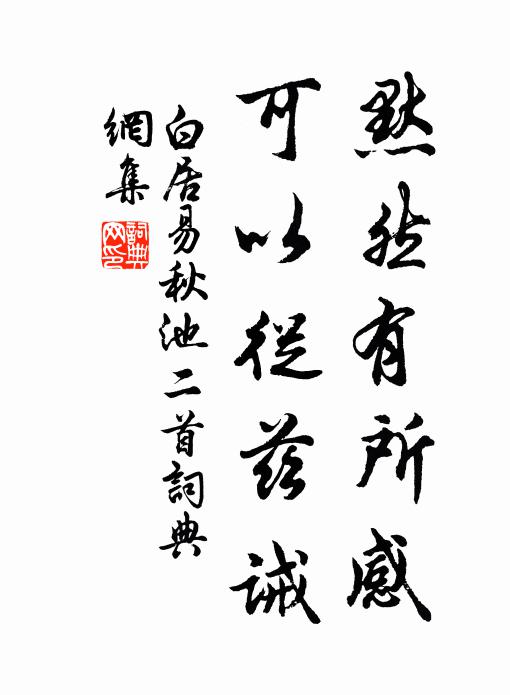 默然有所感
可以從茲誡
白居易秋池二首詞典
網集
詞典
网印